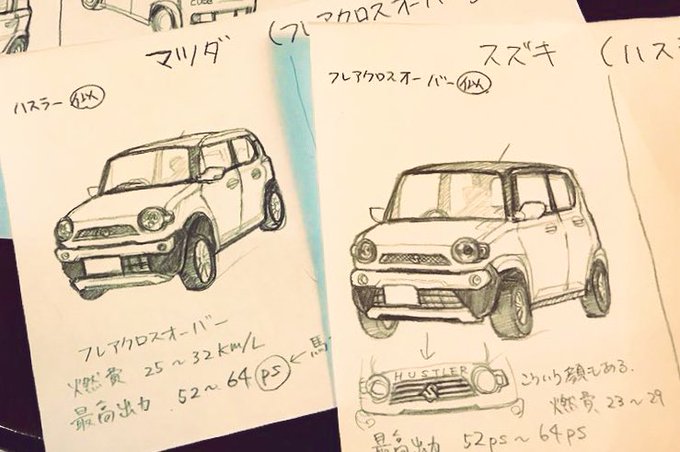 CUBE
マツダ
(フレアクロスオーバー
ハスラー 似
フレアクロスオーバー
燃費 25～32km/L
最高出力 52～64 ps ← 馬
スズキ (ハス
フレアクロスオーバー 似
HUSTLER
こういう顔もある。
燃費 23～29
最高出力 52ps～64ps